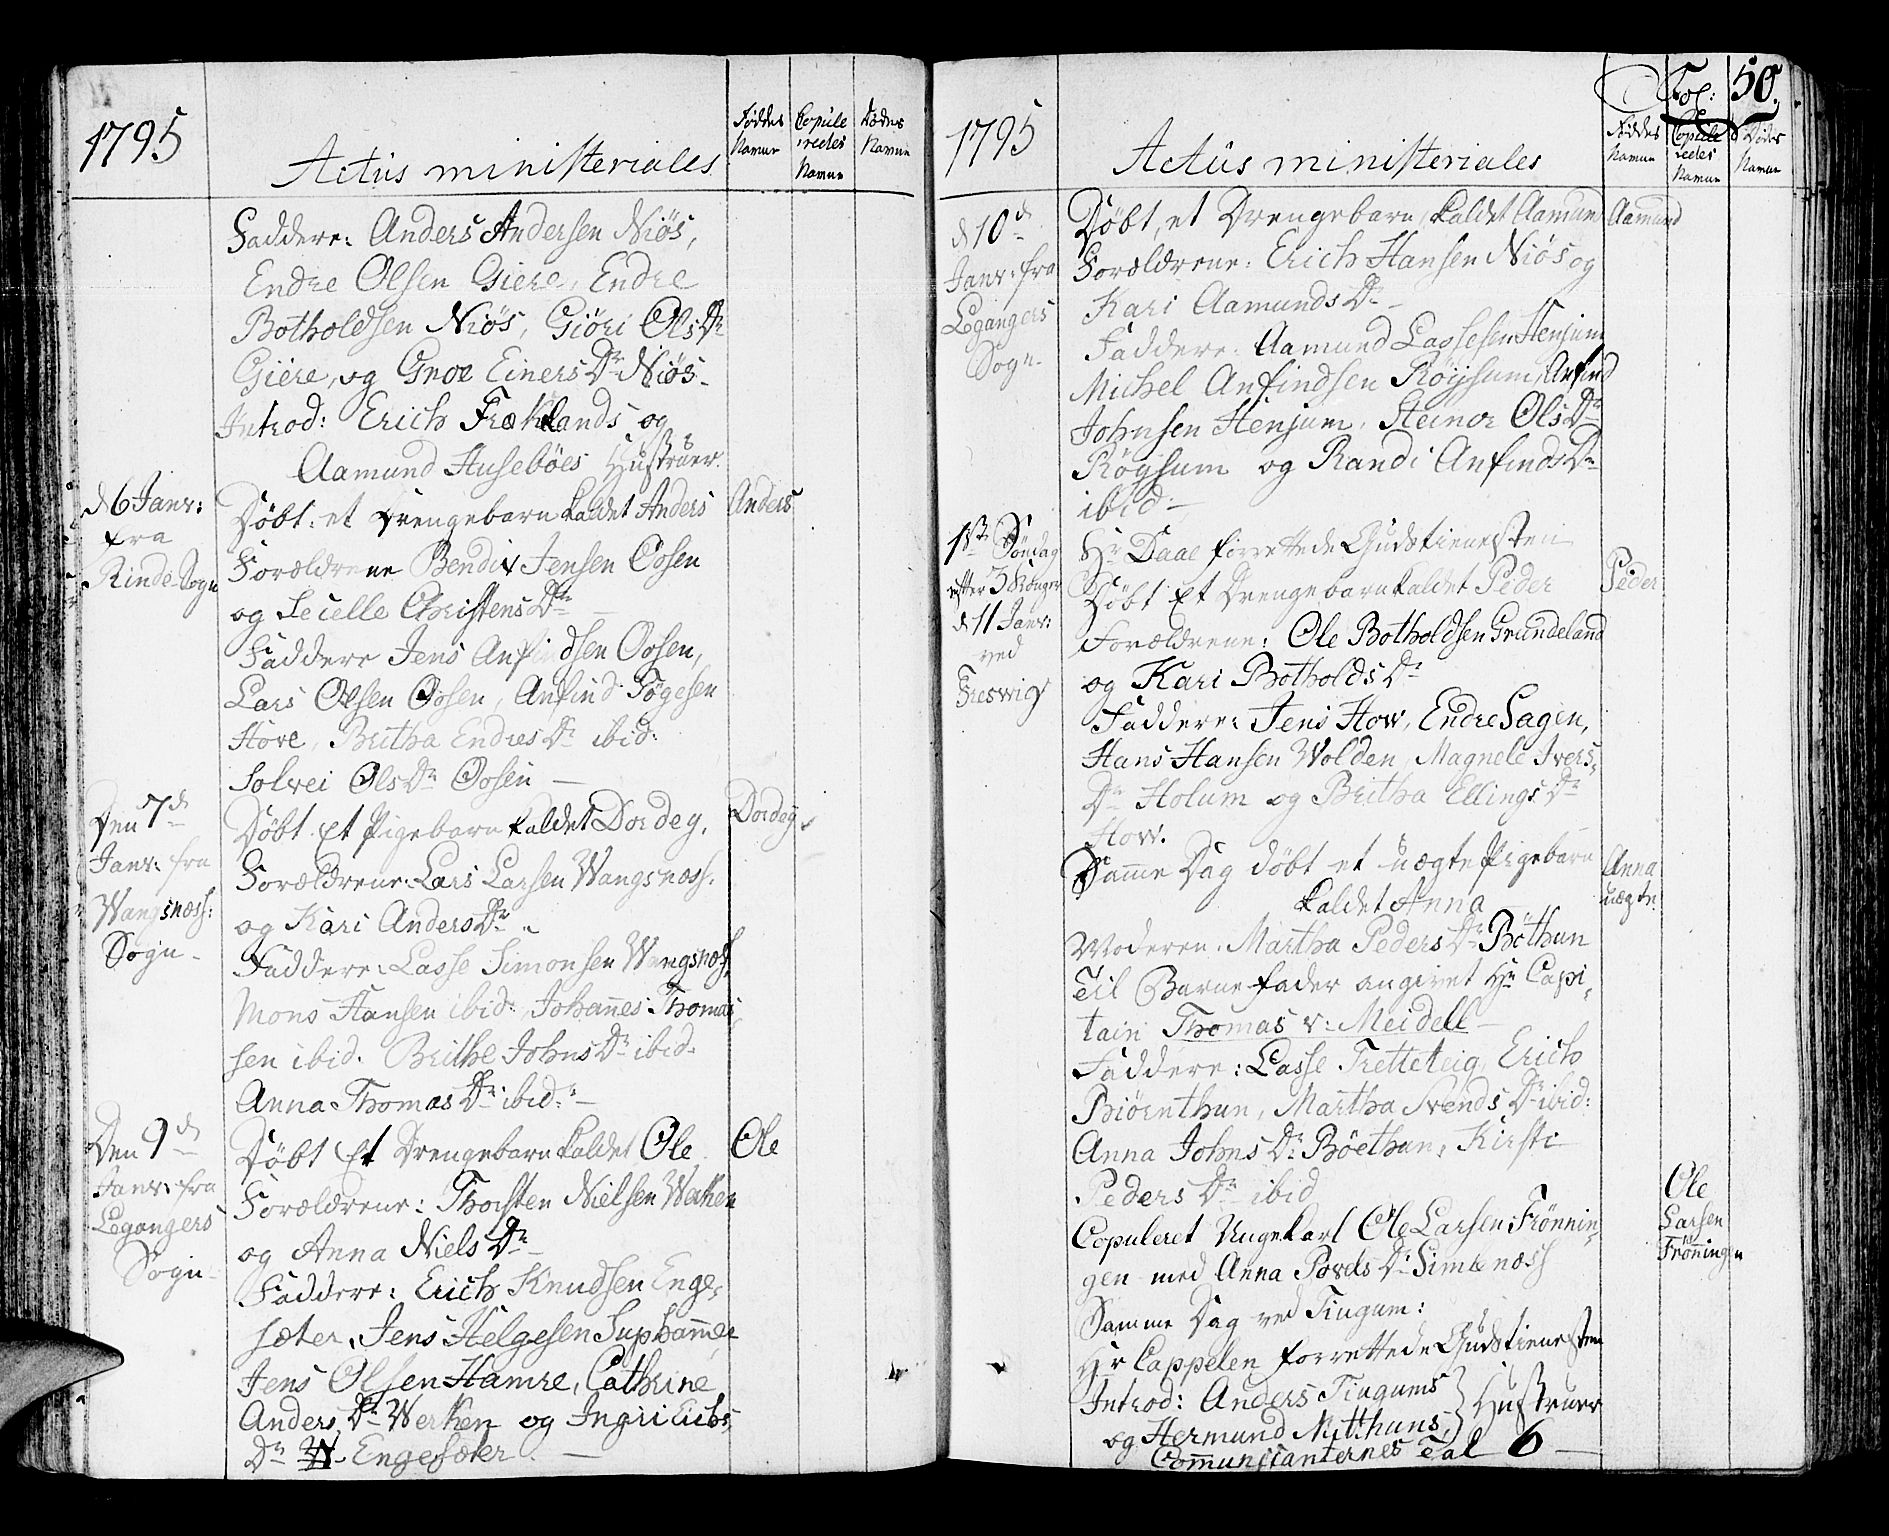 1795
Actus ministeriales
Føddes Navne
Copule redes Navne
Dødes Navne
Faddere: Anders Andersen Niøs,
Endre Olsen Giere, Endre
Botholdsen Niøs, Giøri OlsDr
Giere, og Gnoe EinersDr Niøs.
Introd: Erich Fræhlands og
Aamund Husebøes Hustruer.
d 6 Janv:
fra
Rinde Sogn
Døbt: et Drengebarn kaldet Anders
Anders
Forældrene Bendix Jensen Oosen
og Secelle ChristensDtr
Faddere Jens Anfindsen Oosen,
Lars Olsen Oosen, Anfind Tøgesen
Hove, Britha EndresDr ibid:
Solvei OlsDr Oosen
Den 7d
Janv: fra
Wangsnæss:
Sogn
Døbt Et Pigebarn kaldet Dordey.
Dordey
Forældrene: Lars Larsen Wangsnæss:
og Kari AndersDr
Faddere: Lasse Simonsen Wangsnæss,
Mons Hansen ibid: Johannes Thomas
sen ibid. Brithe JohnsDr ibid.
Anna ThomasDr ibid:
Den 9d
Janv: fra
Legangers
Sogn
Døbt Et Drengebarn kaldet Ole
Ole
Forældrene: Thorsten Nielsen Werken
og Anna NielsDr
Faddere: Erich Knudsen Enge,
sæter, Jens Helgesen Suphammer
Jens Olsen Hamre, Cathrine
AndersDr Werken og Ingri Eirbs,
Dr W. Engesæter
Fol: 50.
1795
Actus ministeriales
Føddes Navne
Copule redes Navne
Dødes Navne
d 10d
Janv: fra
Legangers
Sogn
Døbt, et Drengebarn, kaldet Aamund
Aamund
Forældrene: Erich Hansen Niøs og
Kari AamundsDr
Faddere: Aamund Lassesen Henjum
Michel Anfindsen Røysum, Anfind
Johnsen Henjum, Steinor OlsDr
Røysum og Randi AnfindsDr
ibid
1ste Søndag
efter 3 Konger
d 11 Janv:
ved
Treswig
Hr Daae forrettede Gudstienesten
Døbt Et Drengebarn kaldet Peder
Peder
Forældrene: Ole Botholdsen Grindeland
og Kari BotholdsDr
Faddere: Jens How, Endre Sagen,
Hans Hansen Wolden, Magnele Ivers,
Dr Holum og Britha EllingsDr
How.
Samme Dag døbt et uægte Pigebarn
kaldet Anna
Anna
uægte
Moderen: Martha PedersDr Bøthun
Til Barnefader angivet Hr Capi,
tain Thomas v: Meidell
Faddere: Lasse Tretteteig, Erich
Biørnthun, Martha SvendsDr ibid:
Anna JohnsDr Bøethun, Kirsti
PedersDr ibid
Copuleret Ungekarl Ole Larsen Frønnin,
gen med Anna PovelsDr Simlenæss
Ole
Larsen
Frønningen
Samme Dag ved Tiugum:
Hr Cappelen forrettede Gudstienesten
Introd: Anders Tiugums
og Hermund Mitthuns,
Hustruer
Communicanternes Tal 6